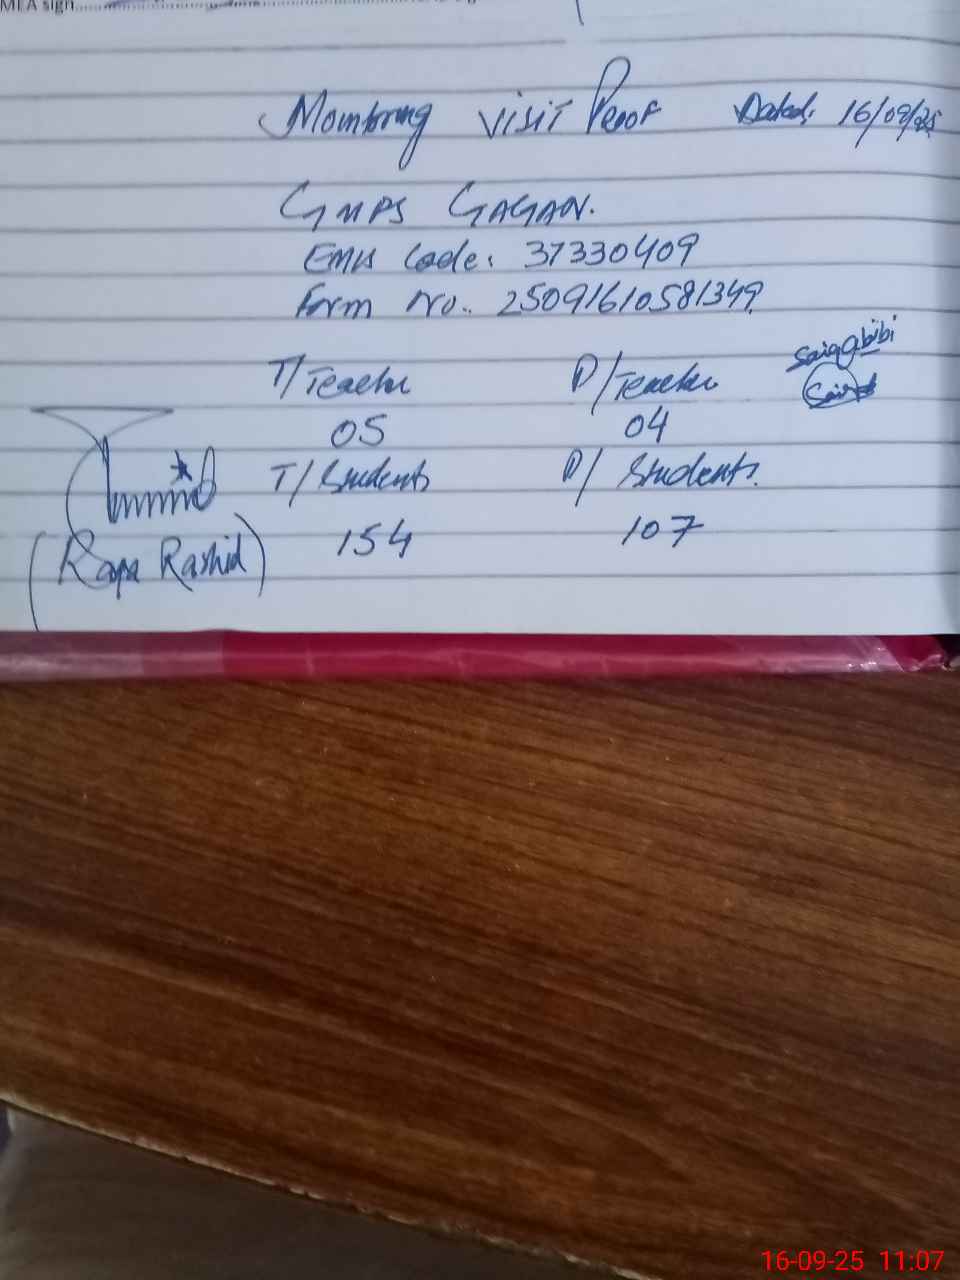 MEA sign
Monitoring Visit Proof Dated: 16/09/25
GMPS GAGAN.
EMIS Code: 37330409
Form No.. 25091610581349
T/Teacher P/Teacher Saiqa bibi
05 04
T/Students P/Students.
154 107
(Raja Rashid)
16-09-25 11:07